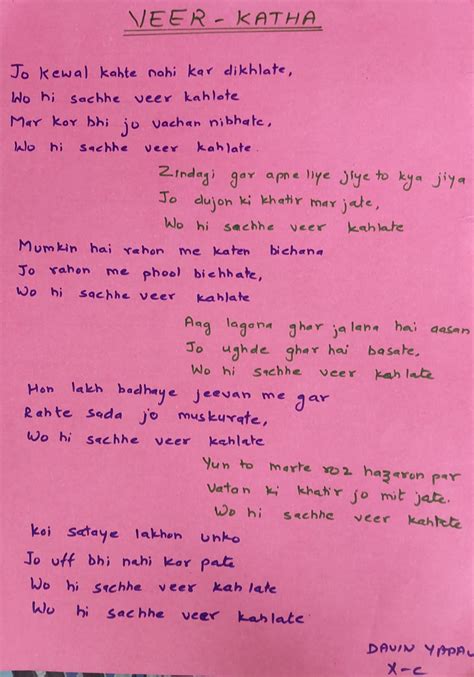 VEER - KATHA
Jo kewal kahte nahi kar dikhlate,
Wo hi sachhe veer kahlate
Mar kar bhi jo vachan nibhate,
Wo hi sachhe veer kahlate.
Zindagi gar apne liye jiye to kya jiya
Jo dujon ki khatir mar jate,
Wo hi sachhe veer kahlate
Mumkin hai rahon me katen bichana
Jo rahon me phool bichhate,
Wo hi sachhe veer kahlate
Aag lagana ghar jalana hai aasan
Jo ughde ghar hai basate,
Wo hi sachhe veer kahlate
Hon lakh badhaye jeevan me gar
Rahte sada jo muskurate,
Wo hi sachhe veer kahlate
Yun to marte roz hazaron par
Vatan ki khatir jo mit jate.
Wo hi sachhe veer kahlate
Koi sataye lakhon unko
Jo uff bhi nahi kar pate
Wo hi sachhe veer kahlate
Wo hi sachhe veer kahlate.
DAVIN YADAV
X-C